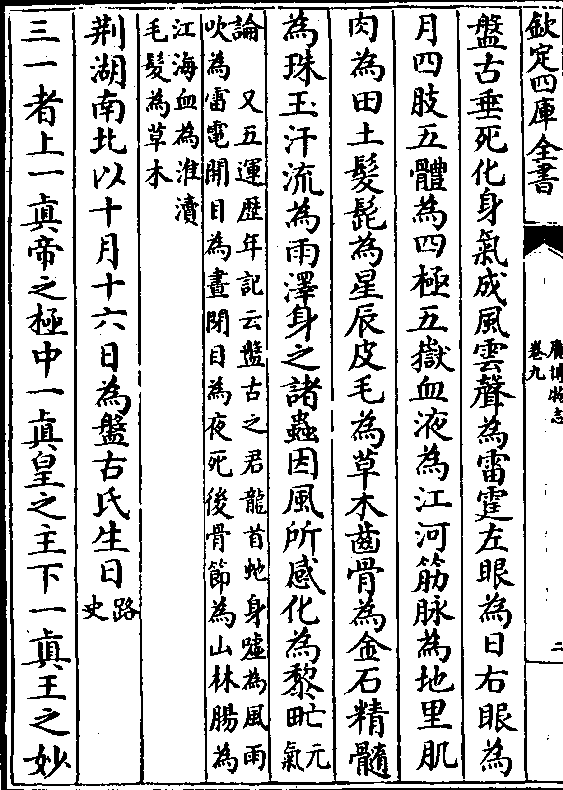 欽定四庫全書
廣博物志
卷九
二
盤古垂死化身氣成風雲聲為雷霆左眼為日右眼為
月四肢五體為四極五嶽血液為江河筋脉為地里肌
肉為田土髮髭為星辰皮毛為草木齒骨為金石精髓
為珠玉汗流為雨澤身之諸蟲因風所感化為黎甿元
氣
論　又五運歷年記云盤古之君龍首虵身噓為風雨
吹為雷電開目為晝閉目為夜死後骨節為山林腸為
江海血為淮瀆
毛髮為草木
荆湖南北以十月十六日為盤古氏生日路
史
三一者上一眞帝之極中一眞皇之主下一眞王之妙